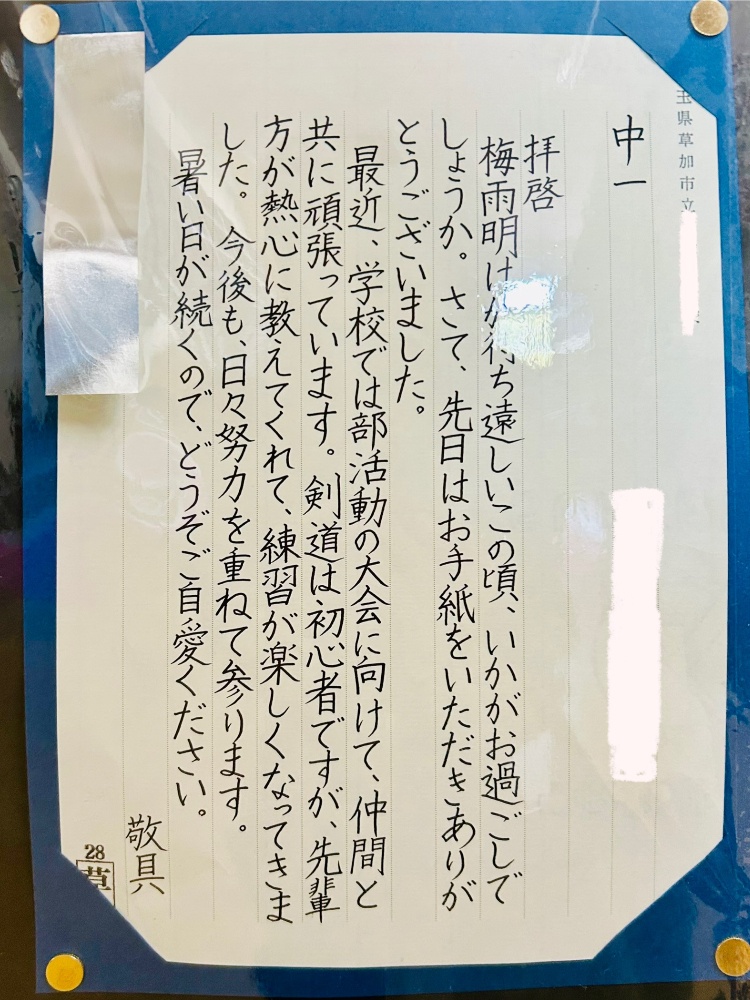 玉県草加市立
中一
拝啓
梅雨明けが待ち遠しいこの頃、いかがお過ごしで
しょうか。さて、先日はお手紙をいただきありが
とうございました。
最近、学校では部活動の大会に向けて、仲間と
共に頑張っています。剣道は初心者ですが、先輩
方が熱心に教えてくれて、練習が楽しくなってきま
した。今後も、日々努力を重ねて参ります。
暑い日が続くので、どうぞご自愛ください。
敬具
28
草